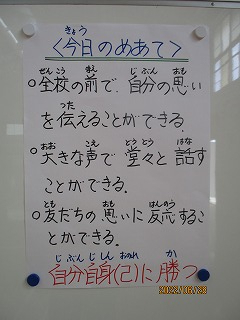 きょう
<今日のめあて>
ぜんこう まえ じぶん おも
○全校の前で、自分の思い
つた
を伝えることができる。
おお こえ どうどう はな
○大きな声で堂々と話す
ことができる。
とも おも はんのう
○友だちの思いに反応するこ
とができる。
じぶんじしん おのれ か
自分自身(己)に勝つ
2022/06/28